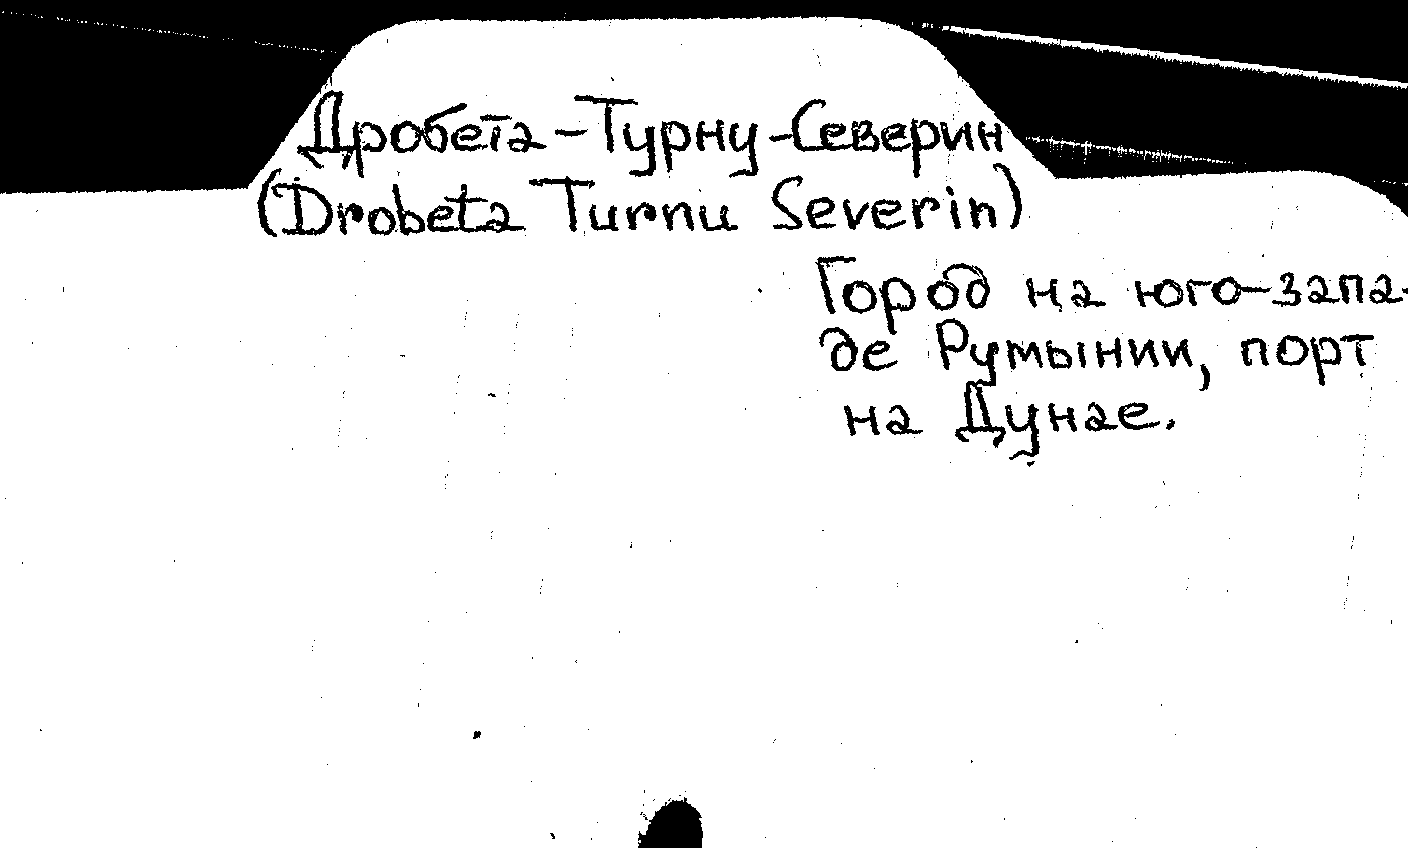 Дробета-Турну-Северин
(Drobeta Turnu Severin)
Город на юго-запа-
де Румынии, порт
на Дунае.